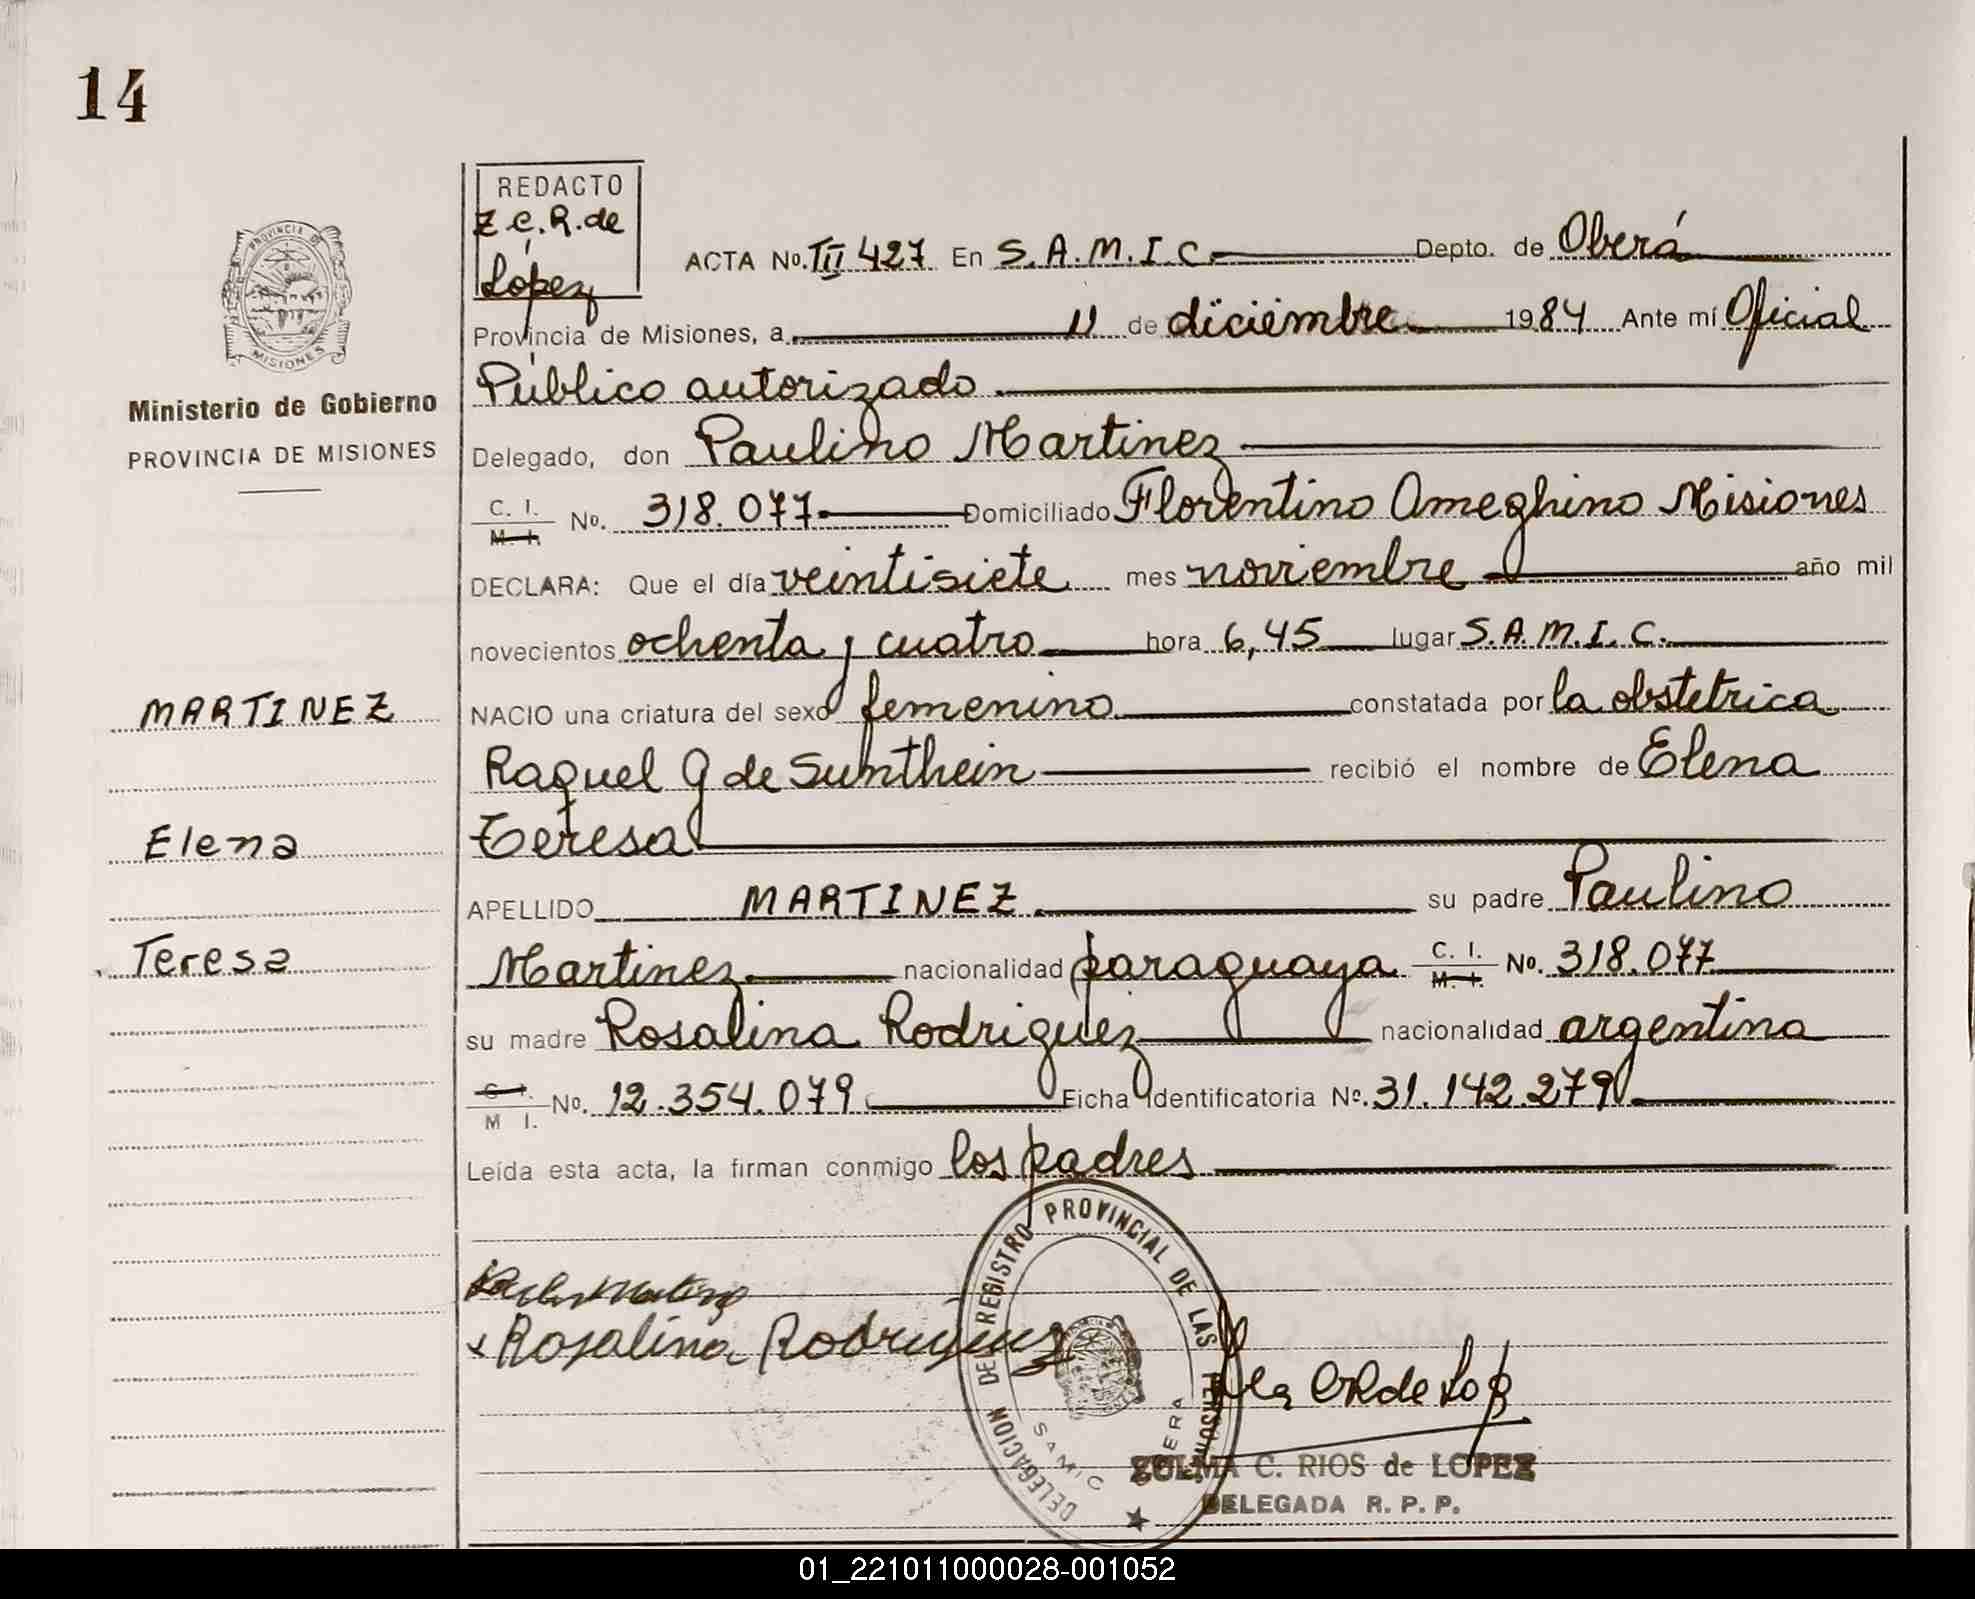 14
REDACTO
Z C. R. de
López
PROVINCIA DE
MISIONES
Ministerio de Gobierno
PROVINCIA DE MISIONES
ACTA No. TIII 427 En S. A. M. I. C. Depto. de Oberá
Provincia de Misiones, a 11 de diciembre 1984 Ante mí Oficial
Público autorizado
Delegado, don Paulino Martinez
C. I. M. I. No. 318.077 Domiciliado Florentino Ameghino Misiones
DECLARA: Que el día veintisiete mes noviembre año mil
novecientos ochenta y cuatro hora 6,45 lugar S. A. M. I. C.
MARTINEZ
NACIO una criatura del sexo femenino constatada por la obstetrica
Raquel G de Sunthein recibió el nombre de Elena
Elena
Teresa
APELLIDO MARTINEZ su padre Paulino
Teresa
Martinez nacionalidad paraguaya C. I. M. I. No. 318.077
su madre Rosalina Rodriguez nacionalidad argentina
C. I. M I. No. 12.354.079 Ficha Identificatoria No. 31.142.279
Leída esta acta, la firman conmigo los padres
DELEGACION DE REGISTRO PROVINCIAL DE LAS PERSONAS
SAMIC OBERA
x Rosalina Rodriguez
ZULMA C. RIOS de LOPEZ
DELEGADA R. P. P.
01_221011000028-001052